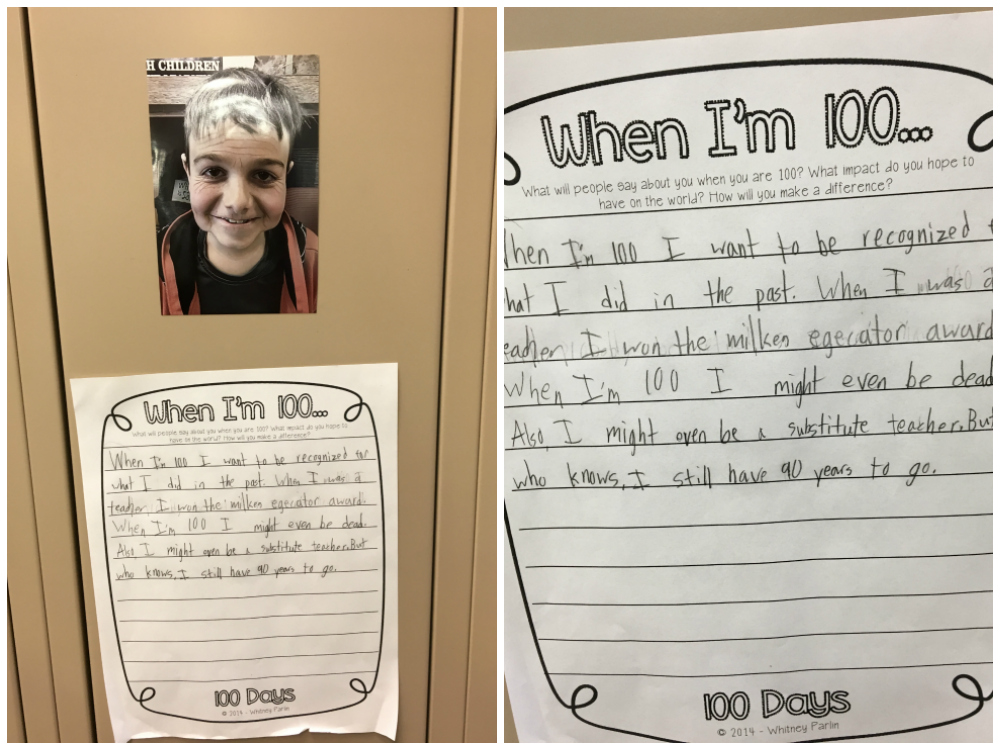 H CHILDREN
When I'm 100...
What will people say about you when you are 100? What impact do you hope to
have on the world? How will you make a difference?
When I'm 100 I want to be recognized for
what I did in the past. When I was a
teacher, I won the milken egecator award.
When I'm 100 I might even be dead.
Also, I might even be a substitute teacher. But
who knows, I still have 90 years to go.
100 Days
© 2014 - Whitney Parlin
When I'm 100...
What will people say about you when you are 100? What impact do you hope to
have on the world? How will you make a difference?
hen I'm 100 I want to be recognized f
hat I did in the past. When I was a
eacher, I won the milken egecator award
When I'm 100 I might even be dead
Also, I might even be a substitute teacher. But
who knows, I still have 90 years to go.
100 Days
© 2014 - Whitney Parlin